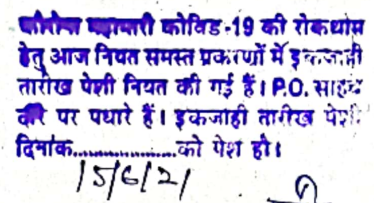 कोरोना महामारी कोविड-19 की रोकथाम
हेतु आज नियत समस्त प्रकरणों में इकजाही
तारीख पेशी नियत की गई हैं। P.O. साहब
दौरे पर पधारे हैं। इकजाही तारीख पेशी
दिनांक..................को पेश हो।
15/6/21